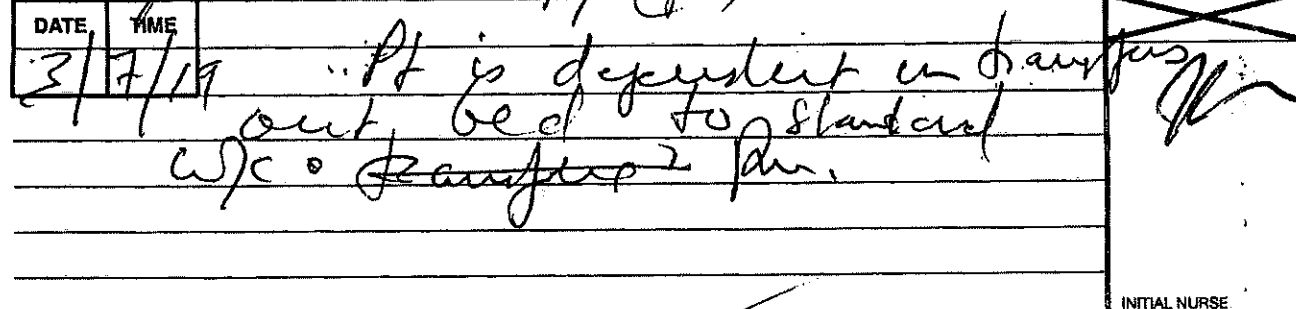 DATE TIME
3/7/19 Pt is dependent in transfers
out bed to standard
W/C.
INITIAL NURSE